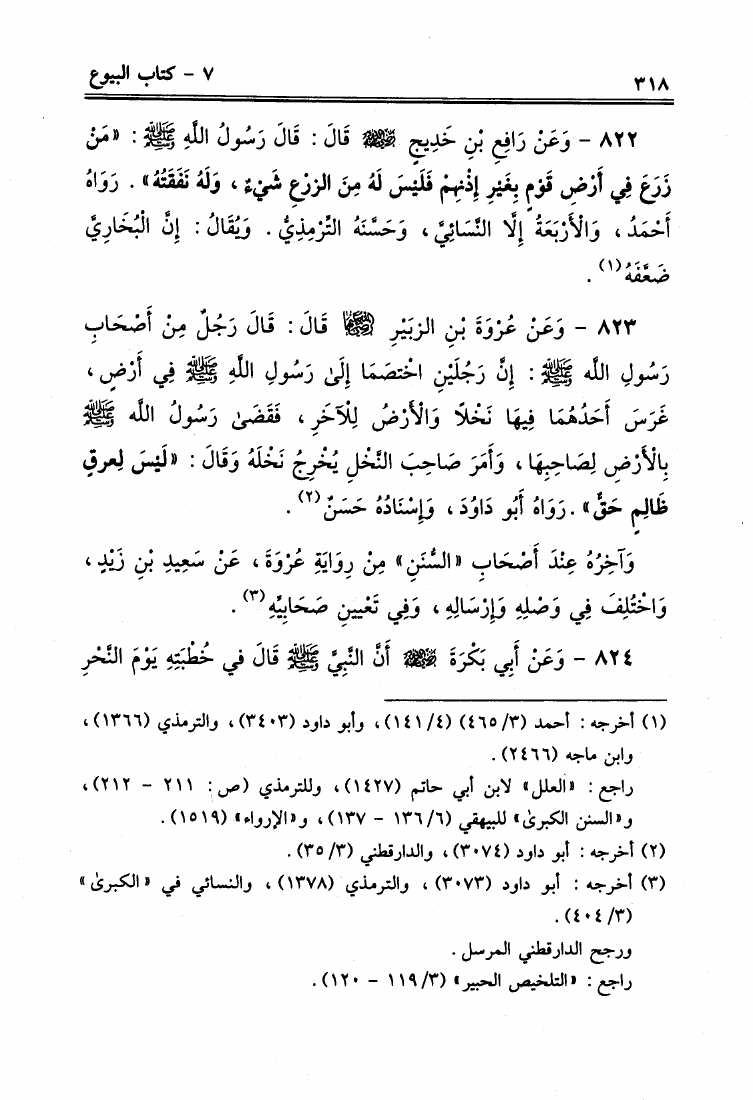 ٣١٨ ٧ - كتاب البيوع
٨٢٢ - وَعَنْ رَافِعِ بْنِ خَدِيجٍ ﵁ قَالَ: قَالَ رَسُولُ اللَّهِ ﷺ: «مَنْ
زَرَعَ فِي أَرْضِ قَوْمٍ بِغَيْرِ إِذْنِهِمْ فَلَيْسَ لَهُ مِنَ الزرْعِ شَيْءٌ، وَلَهُ نَفَقَتُهُ». رَوَاهُ
أَحْمَدُ، وَالْأَرْبَعَةُ إِلَّا النَّسَائِيَّ، وَحَسَّنَهُ التِّرْمِذِيُّ. وَيُقَالُ: إِنَّ الْبُخَارِيَّ
ضَعَّفَهُ(١).
٨٢٣ - وَعَنْ عُرْوَةَ بْنِ الزبَيْرِ قَالَ: قَالَ رَجُلٌ مِنْ أَصْحَابِ
رَسُولِ الله ﷺ: إِنَّ رَجُلَيْنِ اخْتصَمَا إِلَىٰ رَسُولِ اللَّهِ ﷺ فِي أَرْضٍ،
غَرَسَ أَحَدُهُمَا فِيهَا نَخْلًا وَالْأَرْضُ لِلْآخَرِ، فَقَضَىٰ رَسُولُ الله ﷺ
بِالْأَرْضِ لِصَاحِبِهَا، وَأَمَرَ صَاحِبَ النَّخْلِ يُخْرِجُ نَخْلَهُ وَقَالَ: «لَيْسَ لِعرقٍ
ظَالِمٍ حَقٌّ». رَوَاهُ أَبُو دَاوُدَ، وَإِسْنَادُهُ حَسَنٌ(٢).
وَآخِرُهُ عِنْدَ أَصْحَابِ «السُّنَنِ» مِنْ رِوَايَةِ عُرْوَةَ، عَنْ سَعِيدِ بْنِ زَيْدٍ،
وَاخْتُلِفَ فِي وَصْلِهِ وَإِرْسَالِهِ، وَفِي تَعْيينِ صَحَابِيِّهِ(٣).
٨٢٤ - وَعَنْ أَبِي بَكْرَةَ ﵁ أَنَّ النَّبِيَّ ﷺ قَالَ في خُطْبَتِهِ يَوْمَ النَّحْرِ
(١) أخرجه: أحمد (٤٦٥/٣) (١٤١/٤)، وأبو داود (٣٤٠٣)، والترمذي (١٣٦٦)،
وابن ماجه (٢٤٦٦).
راجع: «العلل» لابن أبي حاتم (١٤٢٧)، وللترمذي (ص: ٢١١ - ٢١٢)،
و«السنن الكبرىٰ» للبيهقي (١٣٦/٦ - ١٣٧)، و«الإرواء» (١٥١٩).
(٢) أخرجه: أبو داود (٣٠٧٤)، والدارقطني (٣٥/٣).
(٣) أخرجه: أبو داود (٣٠٧٣)، والترمذي (١٣٧٨)، والنسائي في «الكبرىٰ»
(٤٠٤/٣).
ورجح الدارقطني المرسل.
راجع: «التلخيص الحبير» (١١٩/٣ - ١٢٠).